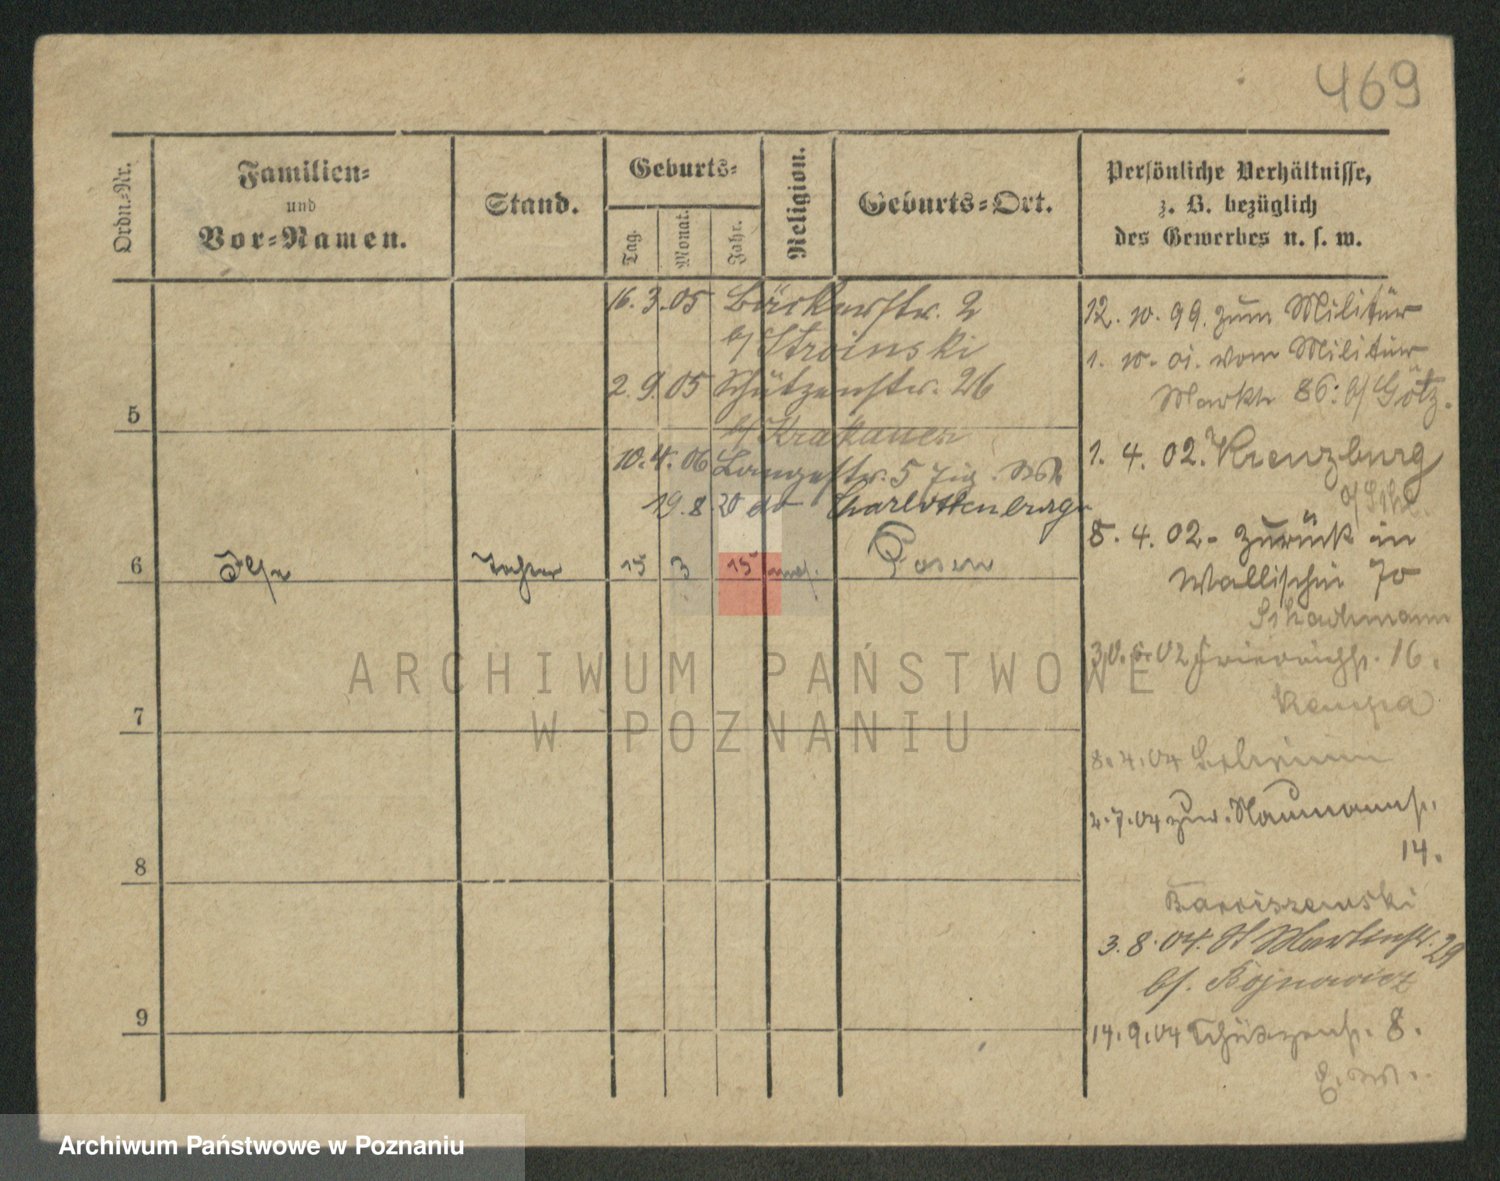 469
Ordn.-Nr.
Familien-
und
Vor-Namen.
Stand.
Geburts-
Tag.
Monat.
Jahr.
Religion.
Geburts-Ort.
Persönliche Verhältnisse,
z. B. bezüglich
des Gewerbes u. s. w.
16. 3. 05 Bäckerstr. 2
b/ Stroinski
2. 9. 05 Schützenstr. 26
b/ Krakauer
10. 4. 06 Langestr. 5
19. 8 20 Charlottenburg
5
6 Ilse Tochter 15 3 15 Posen
7
8
9
12. 10. 99. zum Militär
1. 10. 01. vom Militär
Markt 86: b/ Götz.
1. 4. 02. Kreuzburg
8. 4. 02 - zurück in
Wallischei 70
30. 02 Friedrichstr. 16.
Kempa
8. 4. 04
2. 7. 04 zur. Naumannstr.
14.
3. 8. 04. St Martinstr. 29
bf. Bojnowicz
14. 9. 04 Schützenstr. 8.
ARCHIWUM PAŃSTWOWE
W POZNANIU
Archiwum Państwowe w Poznaniu